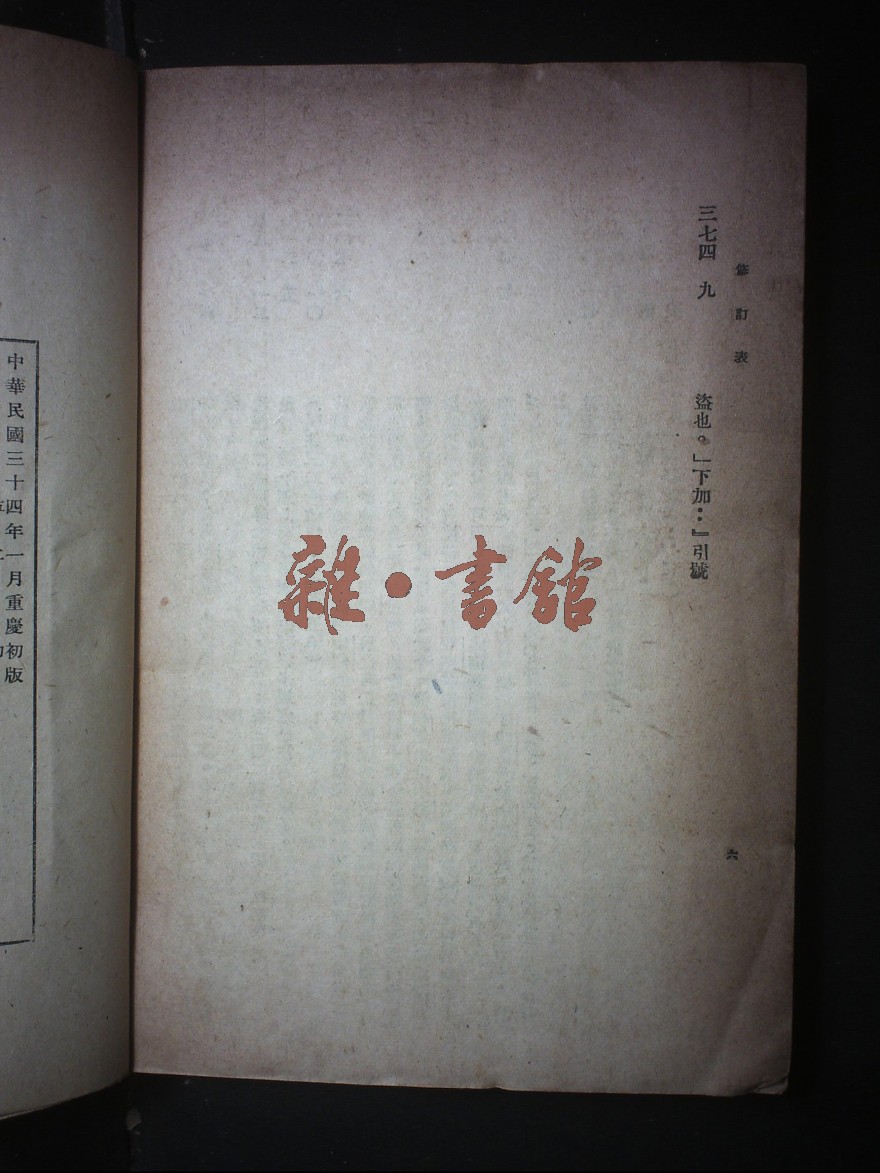 修訂表
六
三七四 九 盜也。」下加：』引號
雜•書館
中華民國三十四年一月重慶初版